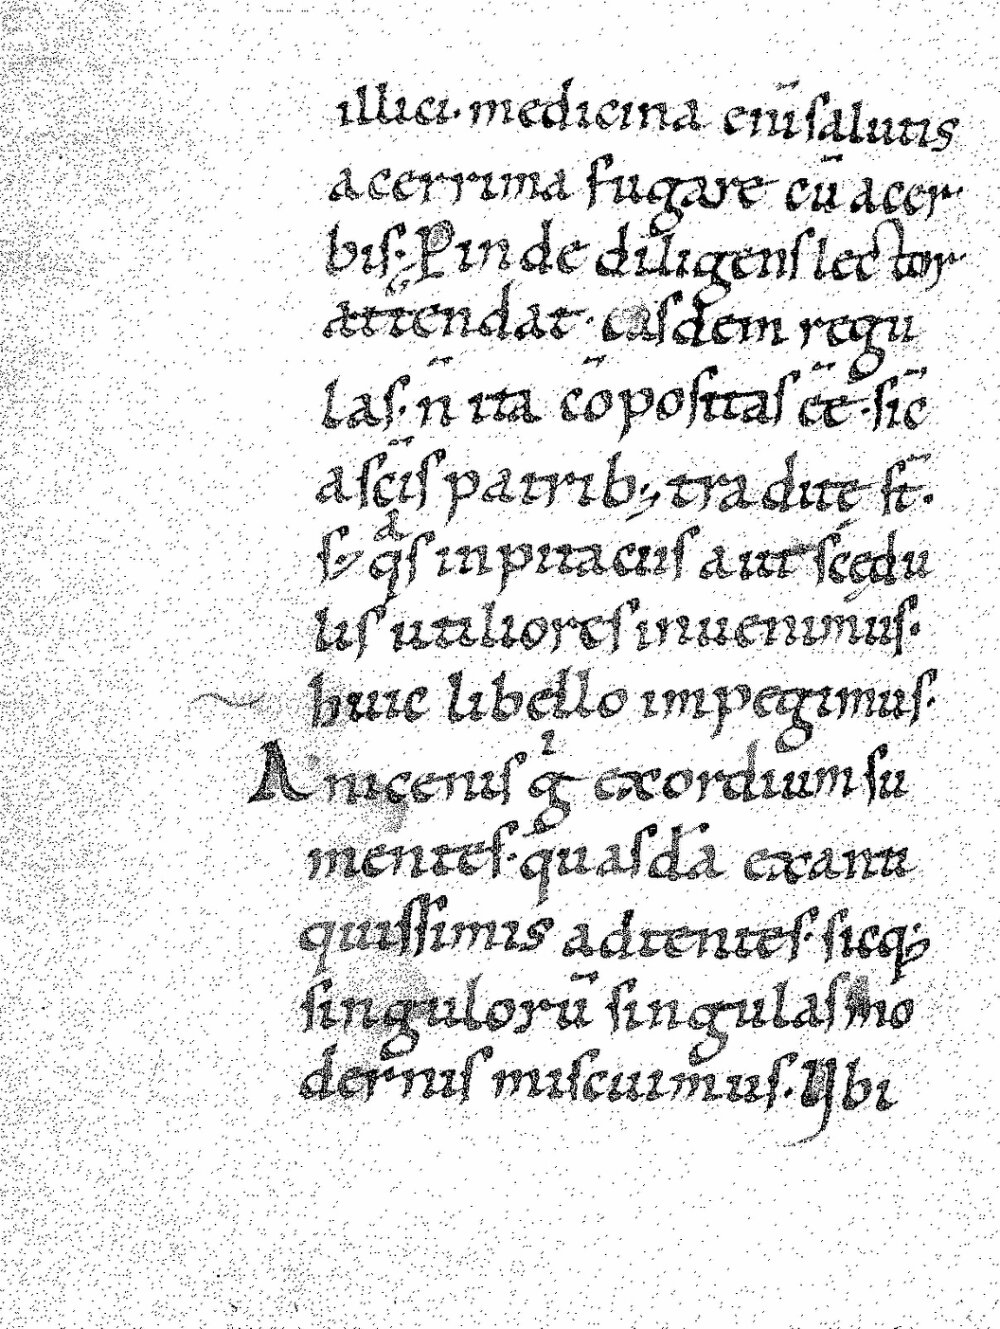 illici· medicina eiū salutis
acerrima fugare cū acer
bis· Pinde diligens lector
attendat· easdem regu
las· n̄ ita cōpositas eē· sic
a sc̄is patrib; tradite st̄.
s; qͣs in pitaciis aut scedu
lis utiliores inuenimus·
huic libello impegimus·
A nicenis gͥ exordium su
mentes· quasdā ex anti
quissimis adtentes· sicq;
singulorū singulas mo
dernis miscuimus· Ubi